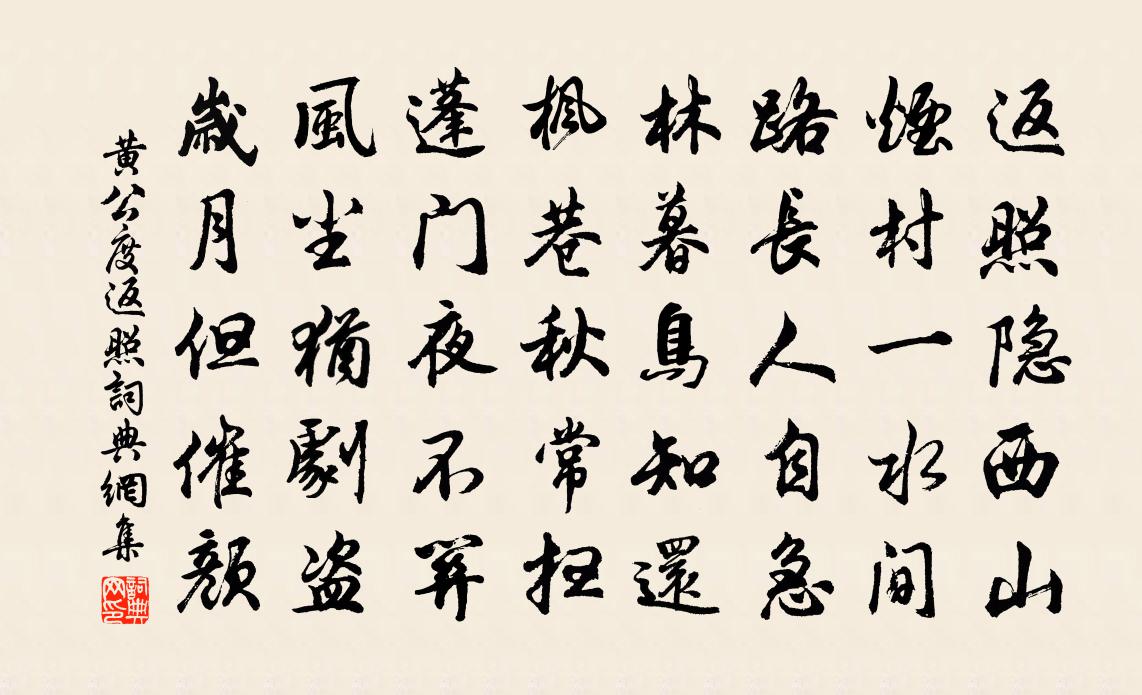 返照隐西山
煙村一水间
路長人自急
林暮鳥知還
枫巷秋常
蓬门夜不關
風尘猶劇盗
歲月但催顏
黄公度返照詞典網集
詞典网印